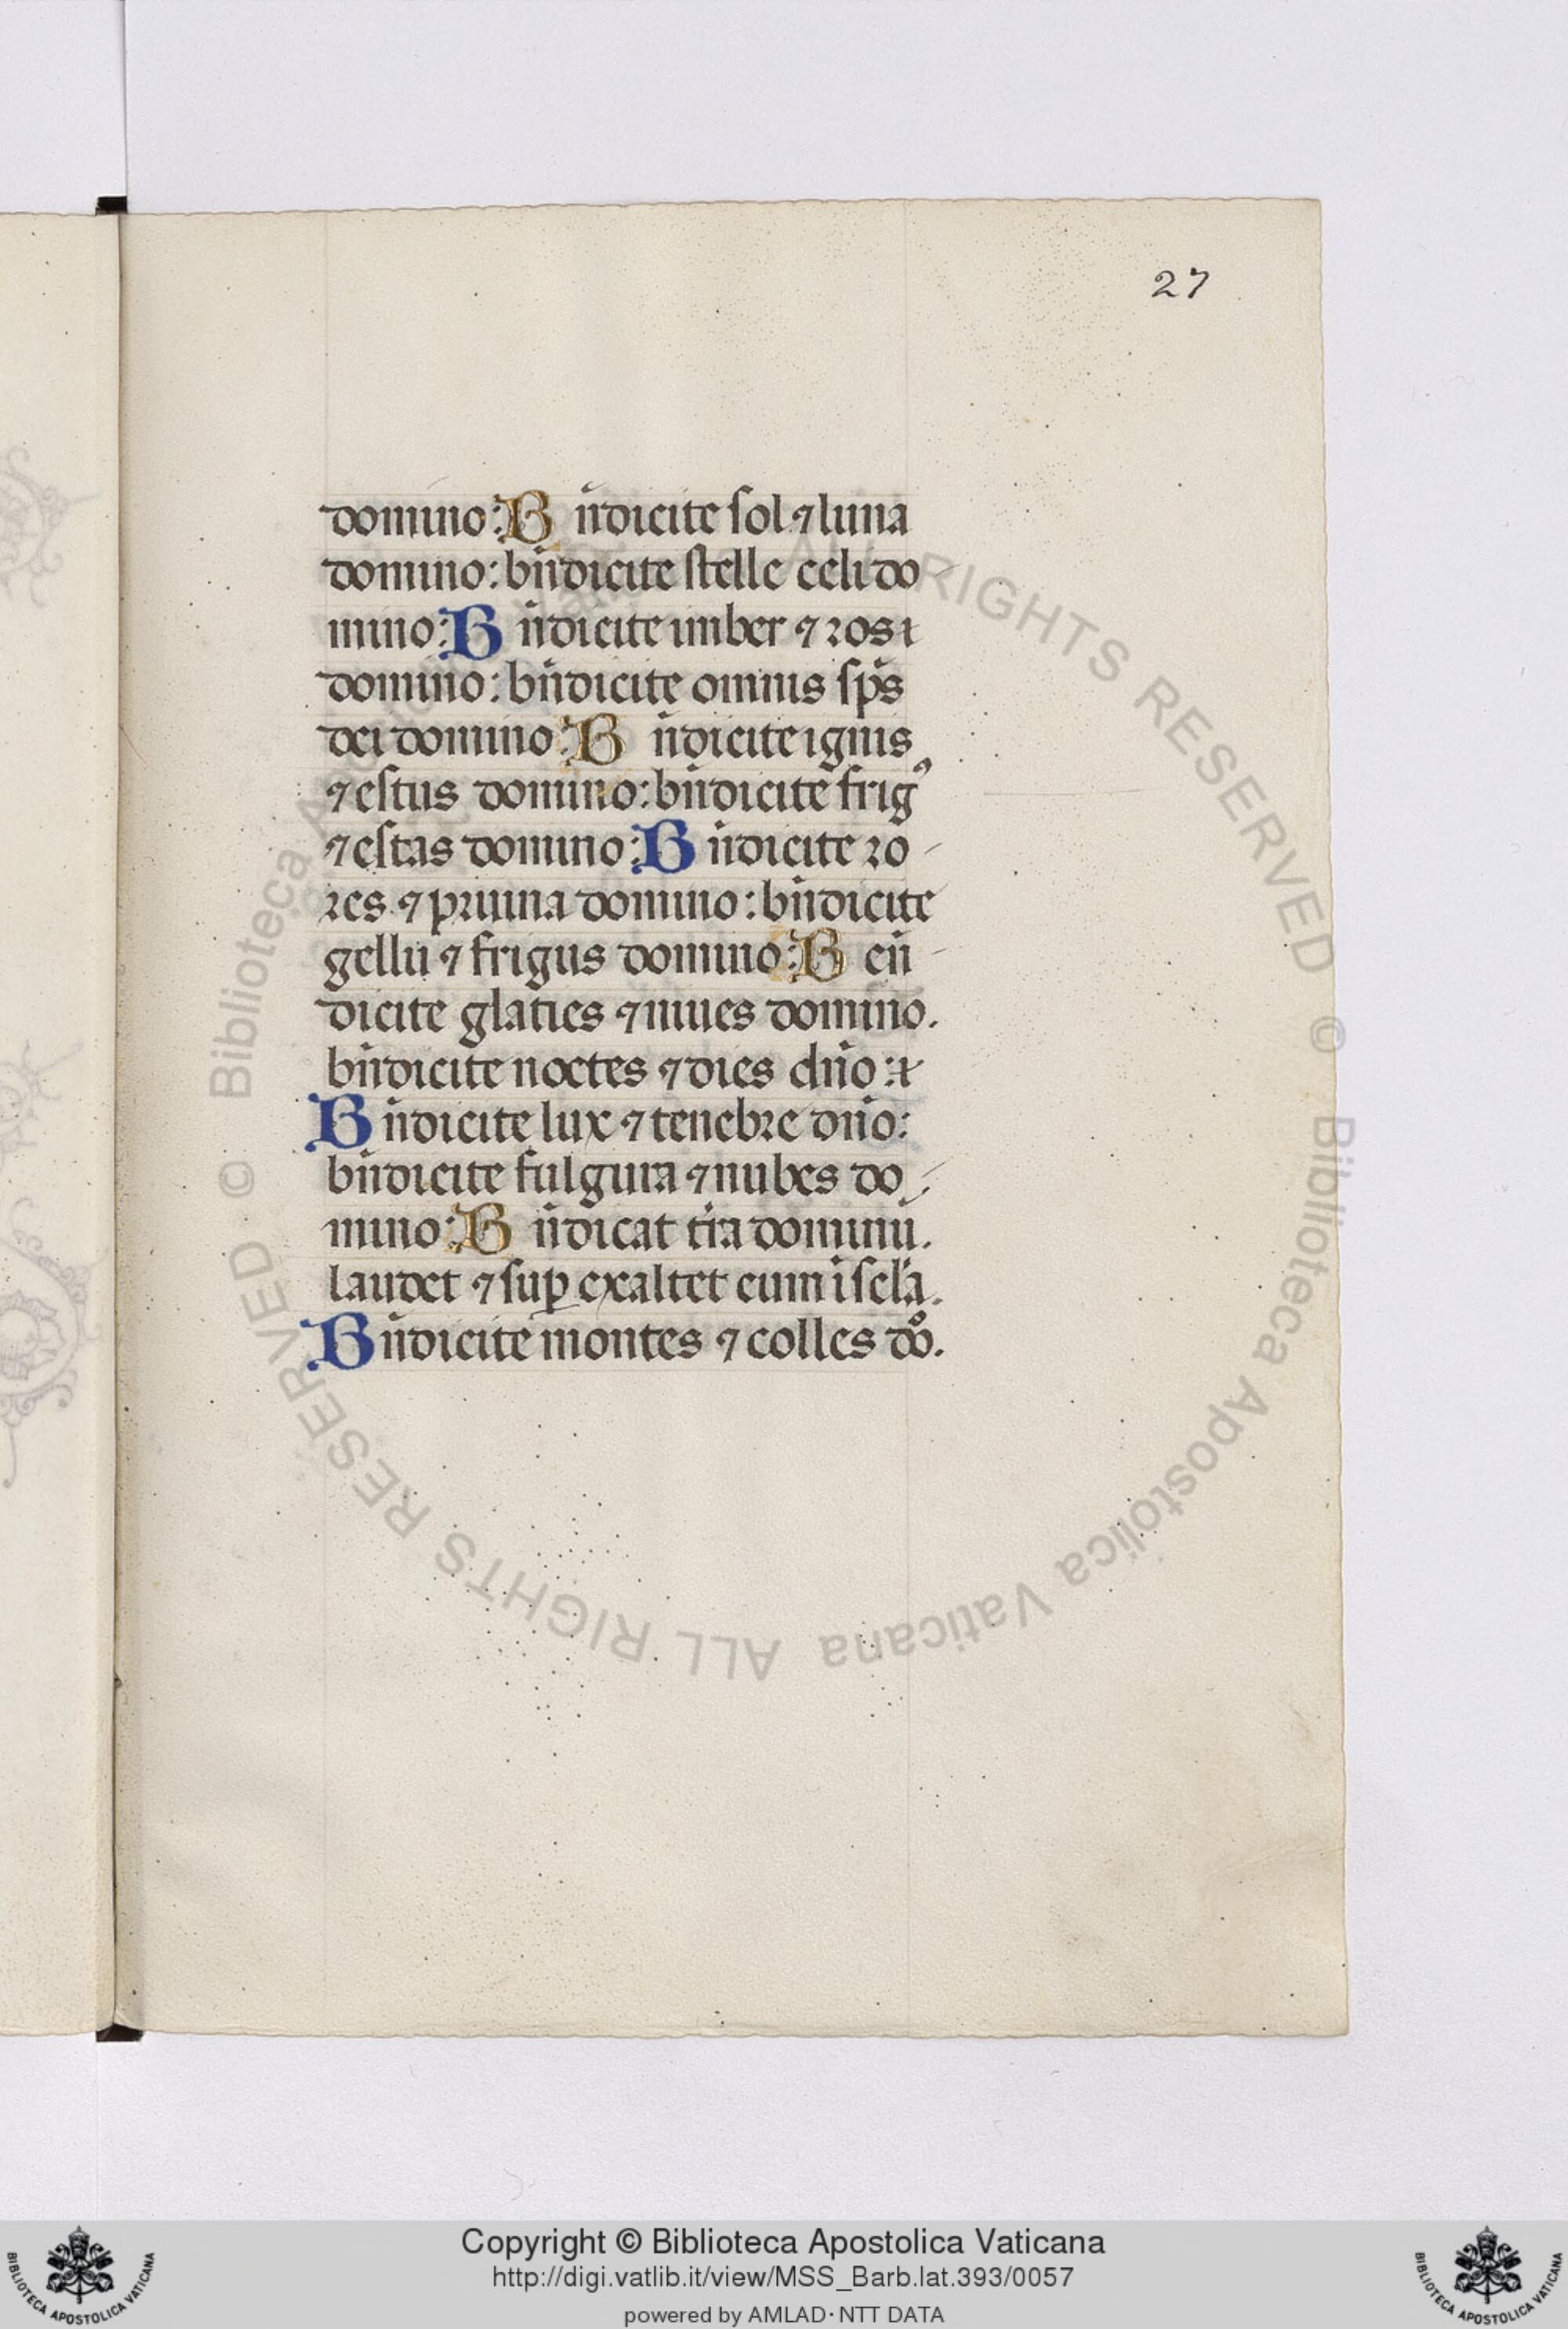 27
domino: B n̄dicite sol ⁊ luna
domino: bn̄dicite stelle celi do
mino: B n̄dicite imber ⁊ ros
domino: bn̄dicite omnis sp̄s
dei domino: B n̄dicite ignis
⁊ estus domino: bn̄dicite frigꝰ
⁊ estas domino: B n̄dicite ro
res ⁊ pruina domino: bn̄dicite
gellu ⁊ frigus domino: B en̄
dicite glaties ⁊ niues domino.
bn̄dicite noctes ⁊ dies dn̄o:
Bn̄dicite lux ⁊ tenebre dn̄o:
bn̄dicite fulgura ⁊ nubes do
mino: B n̄dicat tr̄a dominū.
laudet ⁊ suꝑ exaltet eum ī scl̄a.
Bn̄dicite montes ⁊ colles dº̄.
© Biblioteca Apostolica Vaticana ALL RIGHTS RESERVED
© Biblioteca Apostolica Vaticana ALL RIGHTS RESERVED
Copyright © Biblioteca Apostolica Vaticana
http://digi.vatlib.it/view/MSS_Barb.lat.393/0057
powered by AMLAD·NTT DATA
BIBLIOTECA APOSTOLICA VATICANA
BIBLIOTECA APOSTOLICA VATICANA